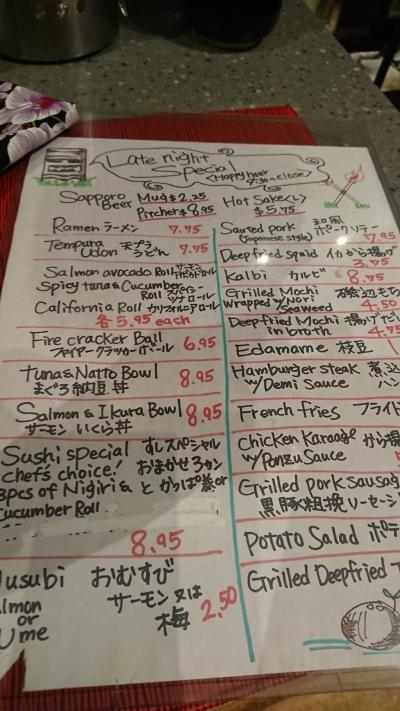 Late night
Special
<Happy hour
9:30~close>
Sapporo Beer Mug $2.25
Pitcher $8.95
Ramen ラーメン 7.75
Tempura Udon 天プラうどん 7.75
Salmon avocado Roll サーモンアボカドロール
Spicy tuna & Cucumber Roll スパイシーツナロール
California Roll カリフォルニアロール
各 5.95 each
Fire cracker Ball 6.95
ファイヤークラッカーボール
Tuna & Natto Bowl 8.95
まぐろ納豆丼
Salmon & Ikura Bowl 8.95
サーモン いくら丼
Sushi special すしスペシャル
chef's choice! おまかせ3カン
3pcs of Nigiri & と かっぱ巻
Cucumber Roll
8.95
Musubi おむすび
Salmon サーモン 又は
or 梅 2.50
Ume
Hot Sake <L>
$5.75
Sauted pork 和風
(Japanese style) ポークソテー
7.95
Deepfried squid イカから揚げ
3.75
Kalbi カルビ 8.75
Grilled Mochi
wrapped w/Nori
Seaweed 4.50
Deepfried Mochi 揚げだし
in broth 4.75
Edamame 枝豆
Hamburger steak 煮込
w/Demi Sauce ハン
French fries フライド
Chicken Karaage から揚
w/Ponzu Sauce 5
Grilled pork sausag
黒豚粗挽ソーセージ
Potato Salad ポテ
Grilled Deepfried